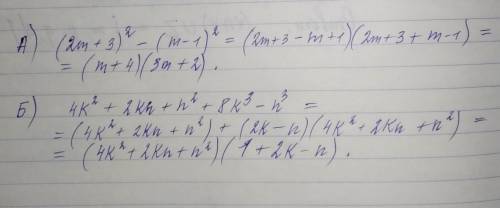 А) (2m+3)² - (m-1)² = (2m+3 - m+1)(2m+3+m-1) =
= (m+4)(3m+2).
Б) 4k² + 2kn + n² + 8k³ - n³ =
= (4k² + 2kn + n²) + (2k-n)(4k² + 2kn + n²) =
= (4k² + 2kn + n²)(1 + 2k - n).